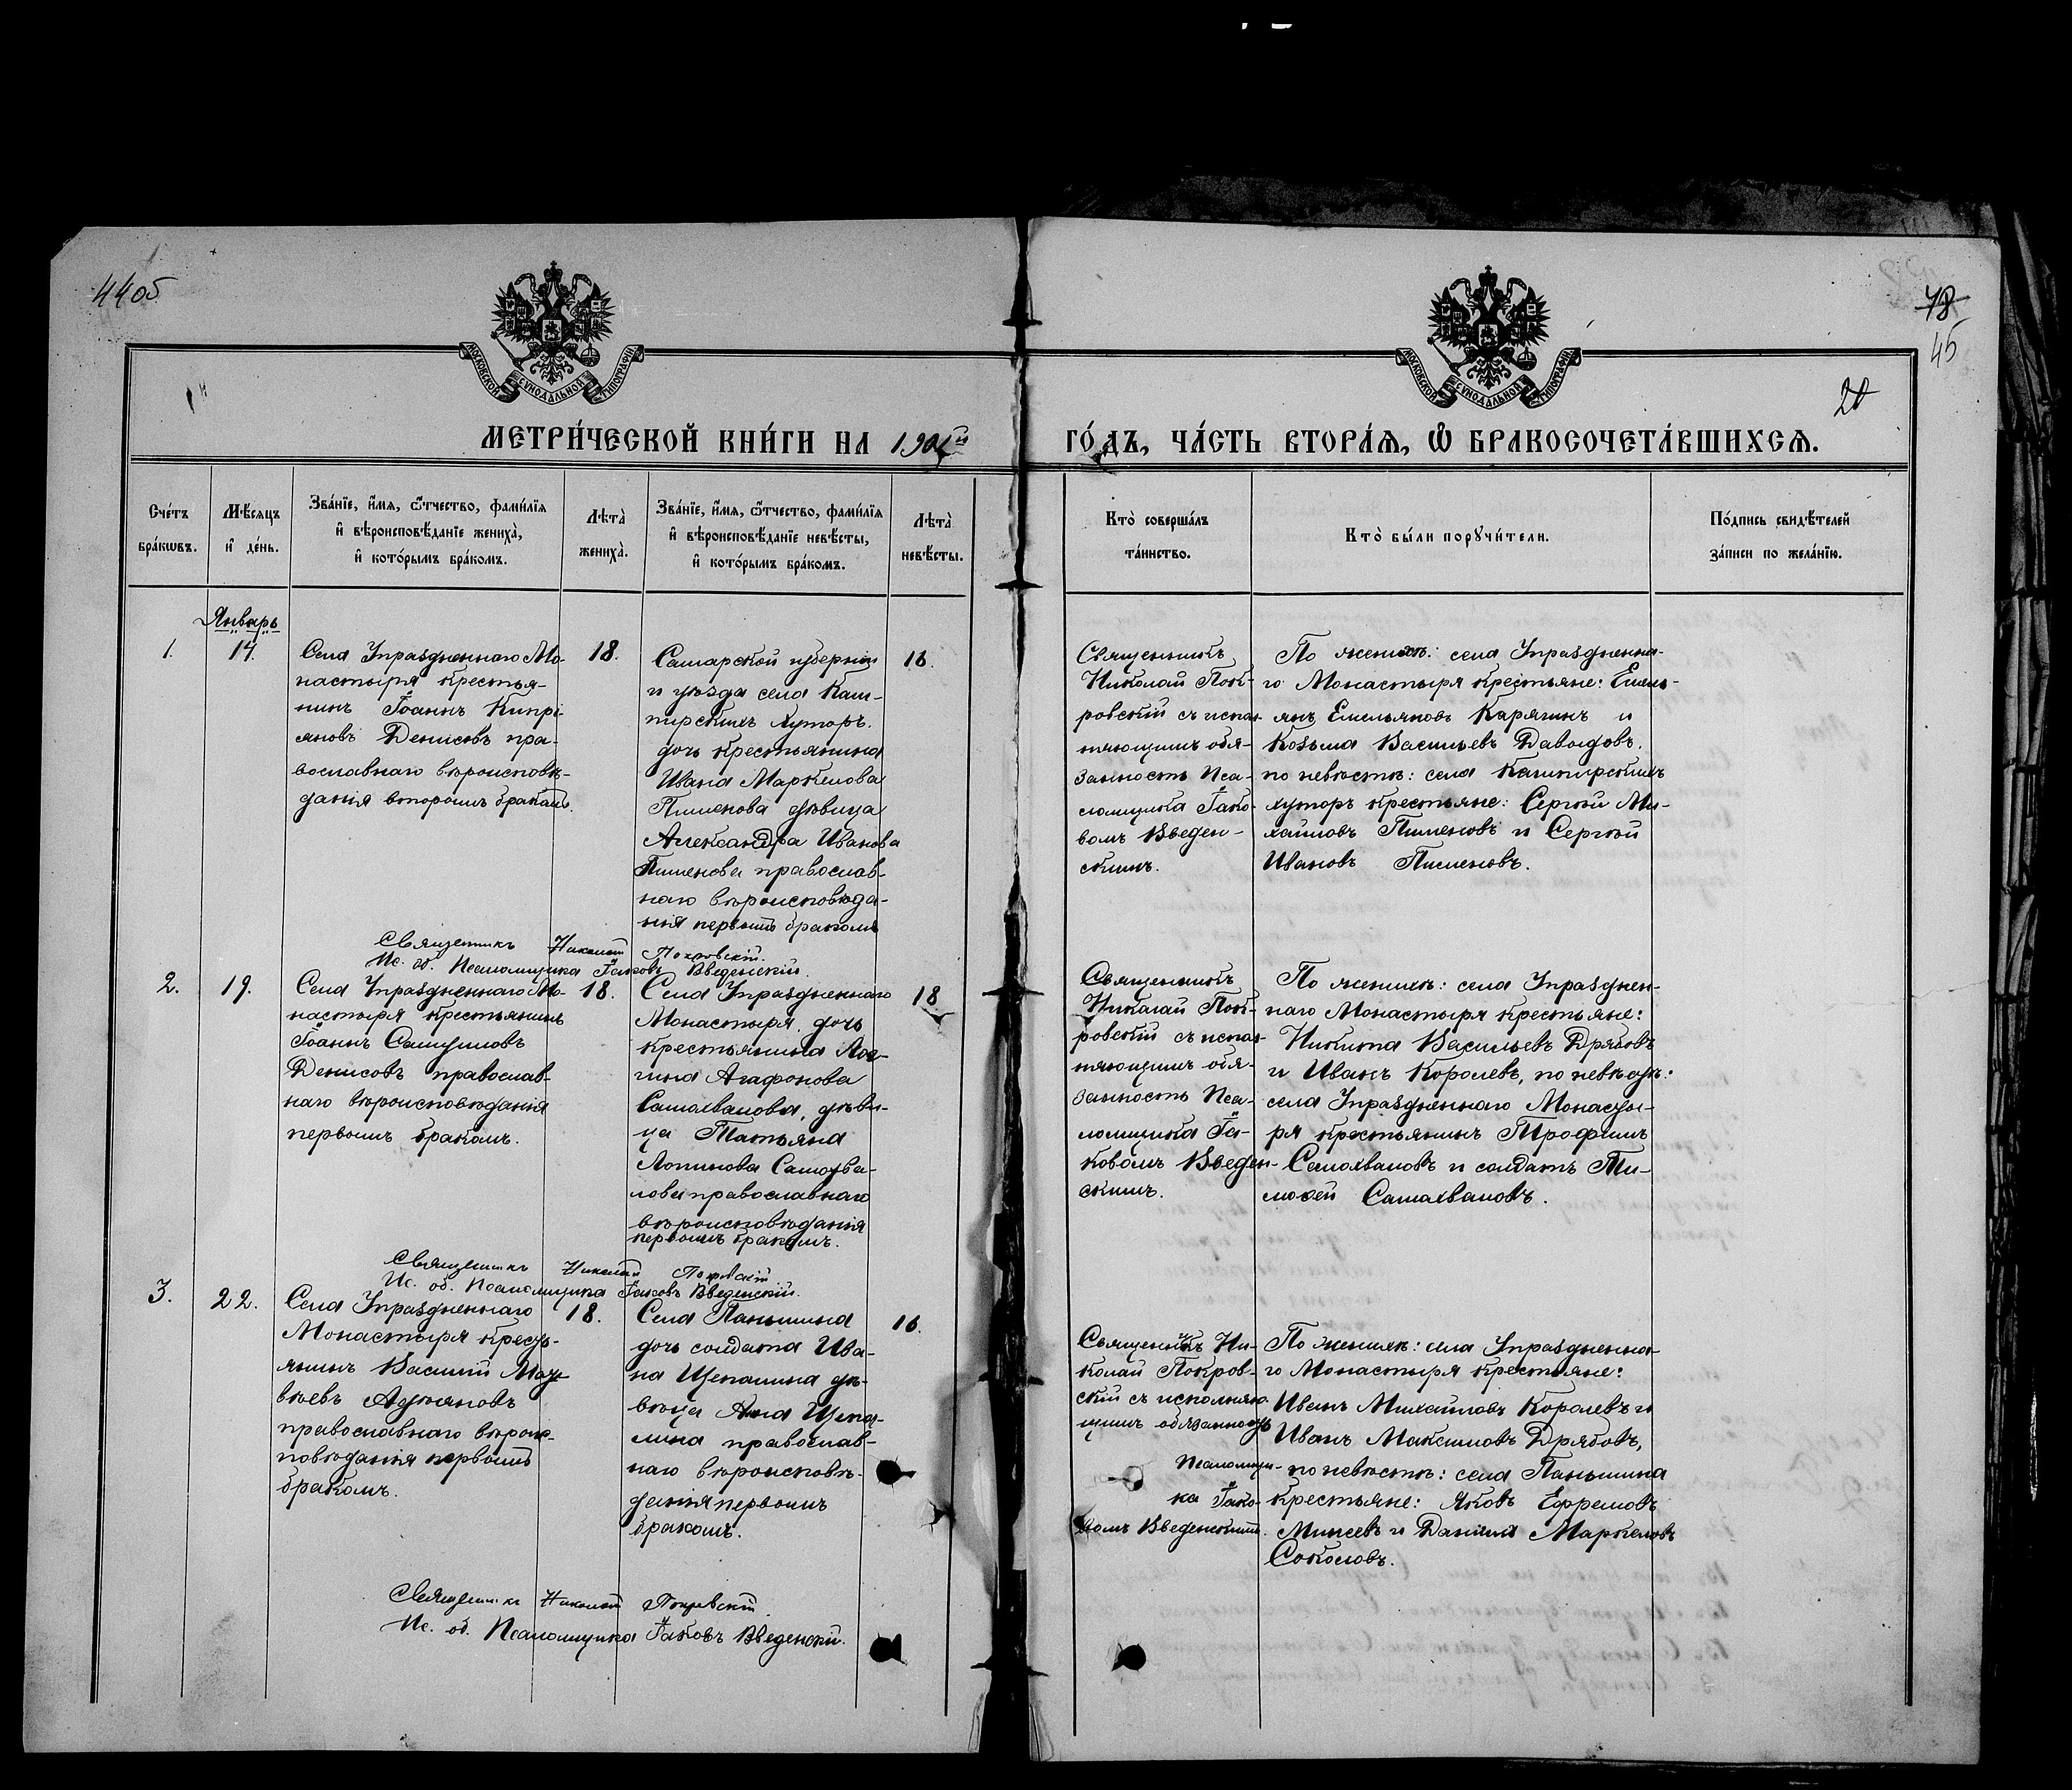 44об
78
45
20
МОСКОВСКОЙ СѴНОДАЛЬНОЙ ТИПОГРАФІИ
МОСКОВСКОЙ СѴНОДАЛЬНОЙ ТИПОГРАФІИ
МЕТРИ́ЧЕСКОЙ КНИ́ГИ НА
ГО́ДЪ, ЧА́СТЬ ВТОРА́Я, Ѡ БРАКОСОЧЕТА́ВШИХСЯ.
Сче́тъ
бра́кѡвъ.
Мѣ́сяцъ
и҆ де́нь.
Зва́нїе, и҆́мя, ѻ҆́тчество, фами́лїя
и҆ вѣроисповѣ́данїе жениха̀,
и҆ кото́рымъ бра́комъ.
Лѣта̀
жениха̀.
Зва́нїе, и҆́мя, ѻ҆́тчество, фами́лїя
и҆ вѣроисповѣ́данїе невѣ́сты,
и҆ кото́рымъ бра́комъ.
Лѣта̀
невѣ́сты.
Кто̀ соверша́лъ
та́инство.
Кто̀ бы́ли порꙋчи́тели.
По́дпись свидѣ́телей
за́писи по жела́нїю.
Январь
1.
14.
Села Упраздненнаго Мо-
настыря крестья-
нинъ Іоаннъ Кипрі-
яновъ Денисовъ пра-
вославнаго вѣроисповѣ-
данія вторымъ бракомъ.
18.
Самарской губерніи
и уѣзда села Каш-
пирскихъ Хуторъ.
дочь крестьянина
Ивана Маркелова
Пименова дѣвица
Александра Иванова
Пименова православ-
наго вѣроисповѣда-
нія первымъ бракомъ
16.
Священникъ
Николай Пок-
ровскій съ испол-
няющимъ обя-
занность Пса-
ломщика Іако-
вомъ Введен-
скимъ.
По женихѣ: села Упразднена-
го Монастыря крестьяне: Емель-
янъ Емельяновъ Карягинъ и
Козьма Васильевъ Давыдовъ.
по невѣстѣ: села Кашпирскихъ
хуторъ крестьяне: Сергѣй Ми-
хаиловъ Пименовъ и Сергѣй
Ивановъ Пименовъ.
Священникъ Николай Покровскій.
Ис. об. Псаломщика Іаковъ Введенскій.
2.
19.
Села Упраздненнаго Мо-
настыря крестьянинъ
Іоаннъ Самуиловъ
Денисовъ православ-
наго вѣроисповѣданія
первымъ бракомъ.
18.
Села Упраздненнаго
Монастыря, дочь
крестьянина Лог-
гина Агафонова
Самохвалова, дѣви-
ца Татьяна
Логинова Самохва-
лова православнаго
вѣроисповѣданія
первымъ бракомъ.
18
Священникъ
Николай Пок-
ровскій съ испол-
няющимъ обя-
занность Пса-
ломщика Іа-
ковомъ Введен-
скимъ.
По женихѣ: села Упразднен-
наго Монастыря крестьяне:
Никита Васильевъ Дрябовъ
и Иванъ Королевъ, по невѣстѣ:
села Упраздненнаго Монасты-
ря крестьянинъ Трофимъ
Самохваловъ и солдатъ Ти-
мофей Самохваловъ.
Священникъ Николай Покровскій
Ис. об. Псаломщика Іаковъ Введенскій.
3.
22.
Села Упраздненнаго
Монастыря кресть-
янинъ Василій Мат-
вѣевъ Адріяновъ
православнаго вѣроис-
повѣданія первымъ
бракомъ.
18.
Села Паньшина
дочь солдата Ива-
на Щепалина дѣ-
вица Анна Щепа-
лина православ-
наго вѣроисповѣ-
данія первымъ
бракомъ.
16.
Священникъ Ни-
колай Покров-
скій съ исполняю-
щимъ обязанность
Псаломщи-
ка Іако-
вомъ Введенскимъ.
По женихѣ: села Упраздненна-
го Монастыря крестьяне:
Иванъ Михайловъ Королевъ и
Иванъ Максимовъ Дрябовъ,
по невѣстѣ: села Паньшина
крестьяне: Яковъ Ефремовъ
Минеевъ и Даніилъ Маркеловъ
Соколовъ.
Священникъ Николай Покровскій
Ис. об. Псаломщика Іаковъ Введенскій.